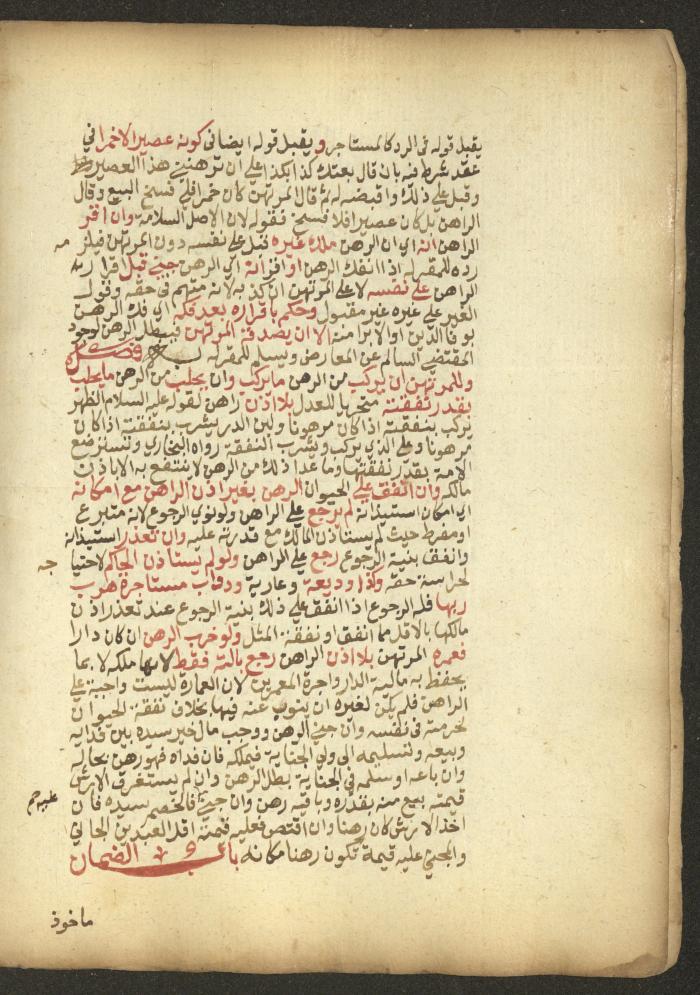 يقبل قوله في الرد كالمستاجر ويقبل قوله ايضا في كونه عصيرا لا خمرا في
عقد شرط فيه بان قال بعتك كذا بكذا على ان ترهنني هذا العصير
وقبل على ذلك واقبضه له ثم قال المرتهن كان خمرا فلي فسخ البيع وقال
الراهن بل كان عصيرا فلا فسخ فقوله لان الاصل السلامة وان اقر
الراهن انه اي ان الرهن ملك غيره قبل على نفسه دون المرتهن فيلزمه
رده للمقر له اذا انفك الرهن او اقر انه اي الرهن جنى قبل اقرار
الراهن على نفسه لا على المرتهن ان كذبه لانه متهم في حقه وقول
الغير على غيره غير مقبول وحكم باقراره بعد فكه اي فك الرهن
بوفا الدين او الابرا منه الا ان يصدقه المرتهن فيبطل الرهن لوجود
المقتضي السالم عن المعارض ويسلم للمقر له به فصل
وللمرتهن ان يركب من الرهن ما يركب وان يحلب من الرهن ما يحلب
بقدر نفقته متحريا للعدل بلا اذن راهن لقوله عليه السلام الظهر
يركب بنفقته اذا كان مرهونا ولبن الدر يشرب بنفقته اذا كان
مرهونا وعلى الذي يركب ويشرب النفقة رواه البخاري وتسترضع
الامة بقدر نفقتها وما عدا ذلك من الرهن لا ينتفع به الا باذن
مالكه وان انفق على الحيوان الرهن بغير اذن الراهن مع امكانه
اي امكان استيذانه لم يرجع على الراهن ولو نوى الرجوع لانه متبرع
او مفرط حيث لم يستاذن المالك مع قدرته عليه وان تعذر استيذانه
وانفق بنية الرجوع رجع على الراهن ولو لم يستاذن الحاكم لاحتياجه
لحراسة حقه وكذا وديعة وعارية ودواب مستاجرة هرب
ربها فله الرجوع اذا انفق على ذلك بنية الرجوع عند تعذر اذن
مالكها بالاقل مما انفق او نفقة المثل ولو خرب الرهن ان كان دارا
فعمره المرتهن بلا اذن الراهن رجع بالته فقط لانها ملكه لا بما
يحفظ به مالية الدار واجرة المعمرين لان العمارة ليست واجبة على
الراهن فلم يكن لغيره ان ينوب عنه فيها بخلاف نفقة الحيوان
لحرمته في نفسه وان جنى الرهن ووجب مال خير سيده بين فدايه
وبيعه وتسليمه الى ولي الجناية فيملكه فان فداه فهو رهن بحاله
وان باعه او سلمه في الجناية بطل الرهن وان لم يستغرق الارش
قيمته بيع منه بقدره وباقيه رهن وان جني عليه فالخصم سيده فان
اخذ الارش كان رهنا وان اقتص فعليه قيمة اقل العبدين الجاني
والمجني عليه قيمة تكون رهنا مكانه باب الضمان
ماخوذ